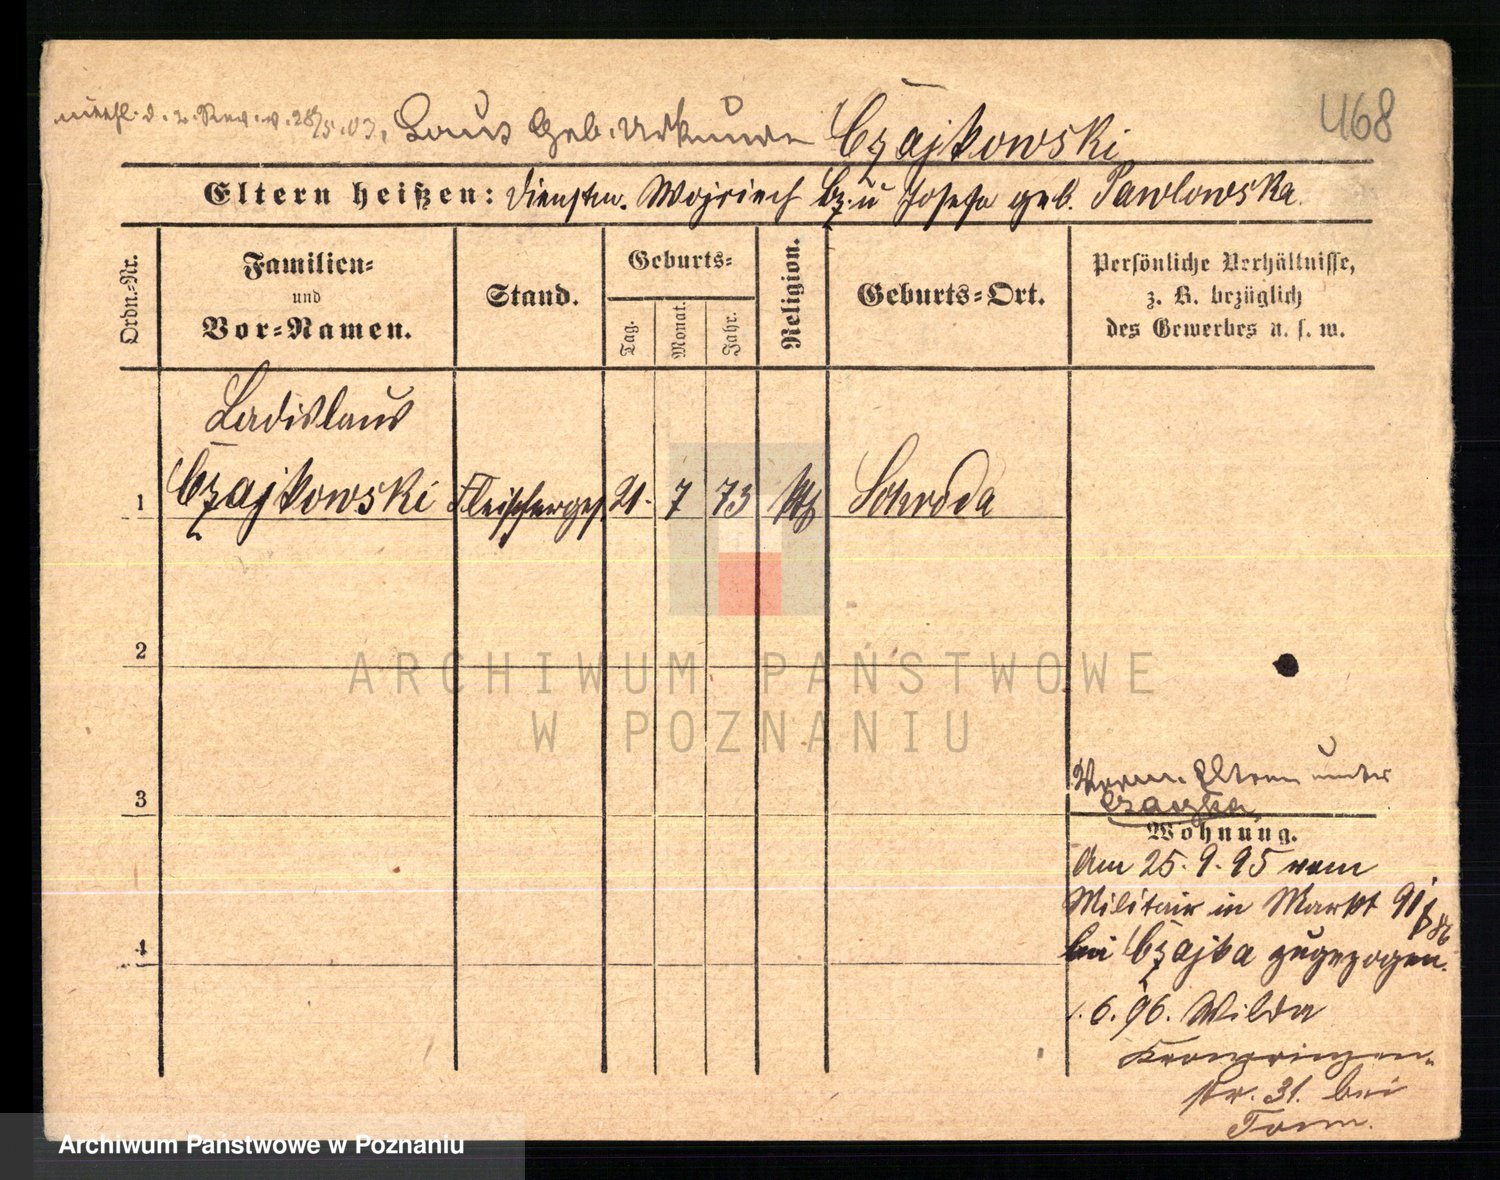 468
lt. d. r. Rev. v. 28/5.03, Laut Geb. Urkunde Czajkowski
Eltern heißen: Dienstm. Wojciech Cz. u Josefa geb. Pawlowska.
Ordn.-Nr.
Familien-
und
Vor-Namen.
Stand.
Geburts-
Tag.
Monat.
Jahr.
Religion.
Geburts-Ort.
Persönliche Verhältnisse,
z. B. bezüglich
des Gewerbes u. s. w.
Ladislaus
1 Czajkowski Fleischerges. 21. 7 73 kth Schroda
2
3
4
Verm. Eltern unter
Czajka
Wohnung.
Am 25.9.95 vom
Militair in Markt 91
bei Czajka zugezogen.
1.6.96. Wilda
Kronprinzen-
str. 31. bei
ARCHIWUM PAŃSTWOWE
W POZNANIU
Archiwum Państwowe w Poznaniu